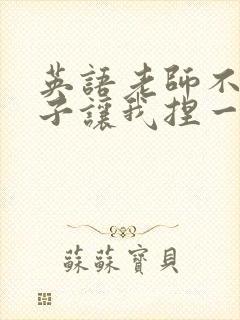 英語老師不
子讓我捏一
蘇蘇寶貝